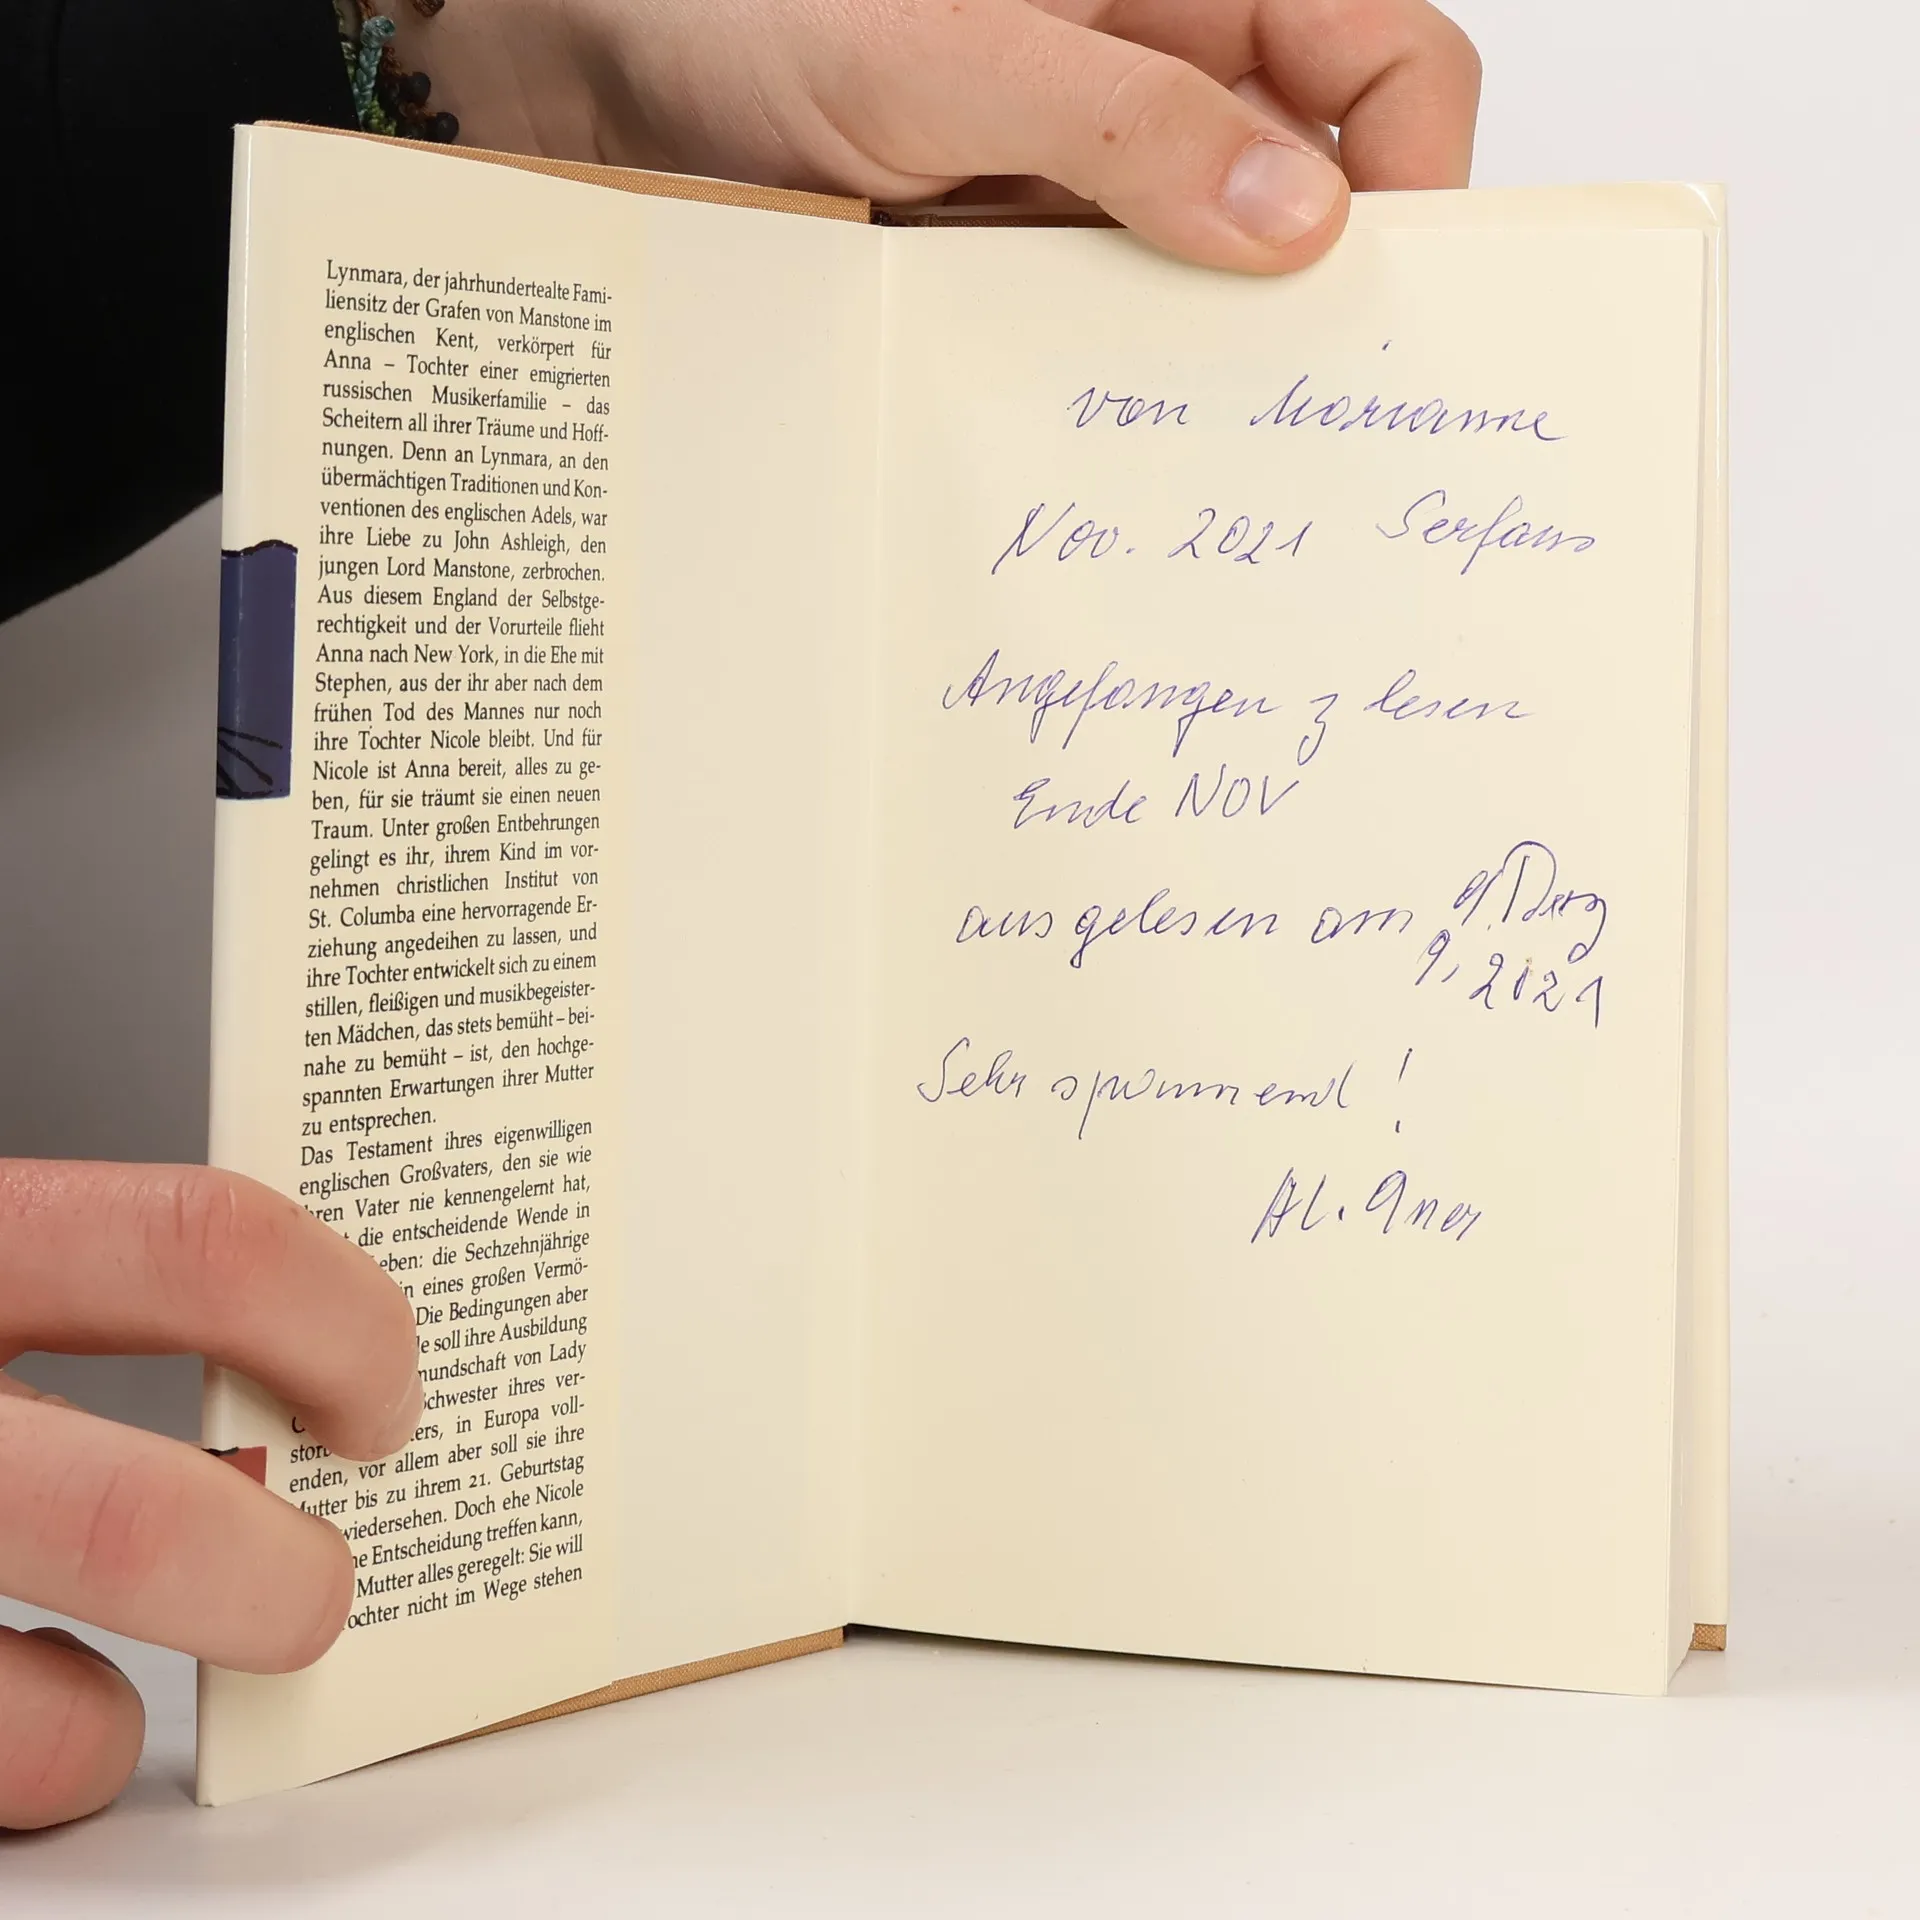 Lynmara, der jahrhundertealte Fami-
liensitz der Grafen von Manstone im
englischen Kent, verkörpert für
Anna – Tochter einer emigrierten
russischen Musikerfamilie – das
Scheitern all ihrer Träume und Hoff-
nungen. Denn an Lynmara, an den
übermächtigen Traditionen und Kon-
ventionen des englischen Adels, war
ihre Liebe zu John Ashleigh, den
jungen Lord Manstone, zerbrochen.
Aus diesem England der Selbstge-
rechtigkeit und der Vorurteile flieht
Anna nach New York, in die Ehe mit
Stephen, aus der ihr aber nach dem
frühen Tod des Mannes nur noch
ihre Tochter Nicole bleibt. Und für
Nicole ist Anna bereit, alles zu ge-
ben, für sie träumt sie einen neuen
Traum. Unter großen Entbehrungen
gelingt es ihr, ihrem Kind im vor-
nehmen christlichen Institut von
St. Columba eine hervorragende Er-
ziehung angedeihen zu lassen, und
ihre Tochter entwickelt sich zu einem
stillen, fleißigen und musikbegeister-
ten Mädchen, das stets bemüht – bei-
nahe zu bemüht – ist, den hochge-
spannten Erwartungen ihrer Mutter
zu entsprechen.
Das Testament ihres eigenwilligen
englischen Großvaters, den sie wie
hren Vater nie kennengelernt hat,
t die entscheidende Wende in
eben: die Sechzehnjährige
in eines großen Vermö-
Die Bedingungen aber
le soll ihre Ausbildung
mundschaft von Lady
Schwester ihres ver-
storb ers, in Europa voll-
enden, vor allem aber soll sie ihre
Mutter bis zu ihrem 21. Geburtstag
wiedersehen. Doch ehe Nicole
ne Entscheidung treffen kann,
Mutter alles geregelt: Sie will
ochter nicht im Wege stehen
von Marianne
Nov. 2021 Serfaus
Angefangen z lesen
Ende NOV
ausgelesen am 9.
9, 2021
Sehr spannend!